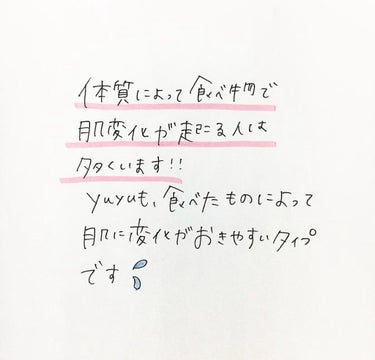 体質によって食べ物で
肌変化が起こる人は
多くいます!!
yuyuも、食べたものによって
肌に変化がおきやすいタイプ
です💦